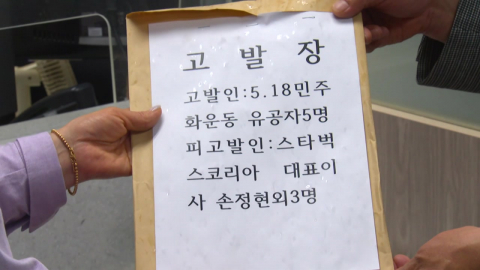 고 발 장
고발인:5.18민주
화운동 유공자5명
피고발인:스타벅
스코리아 대표이
사 손정현외3명